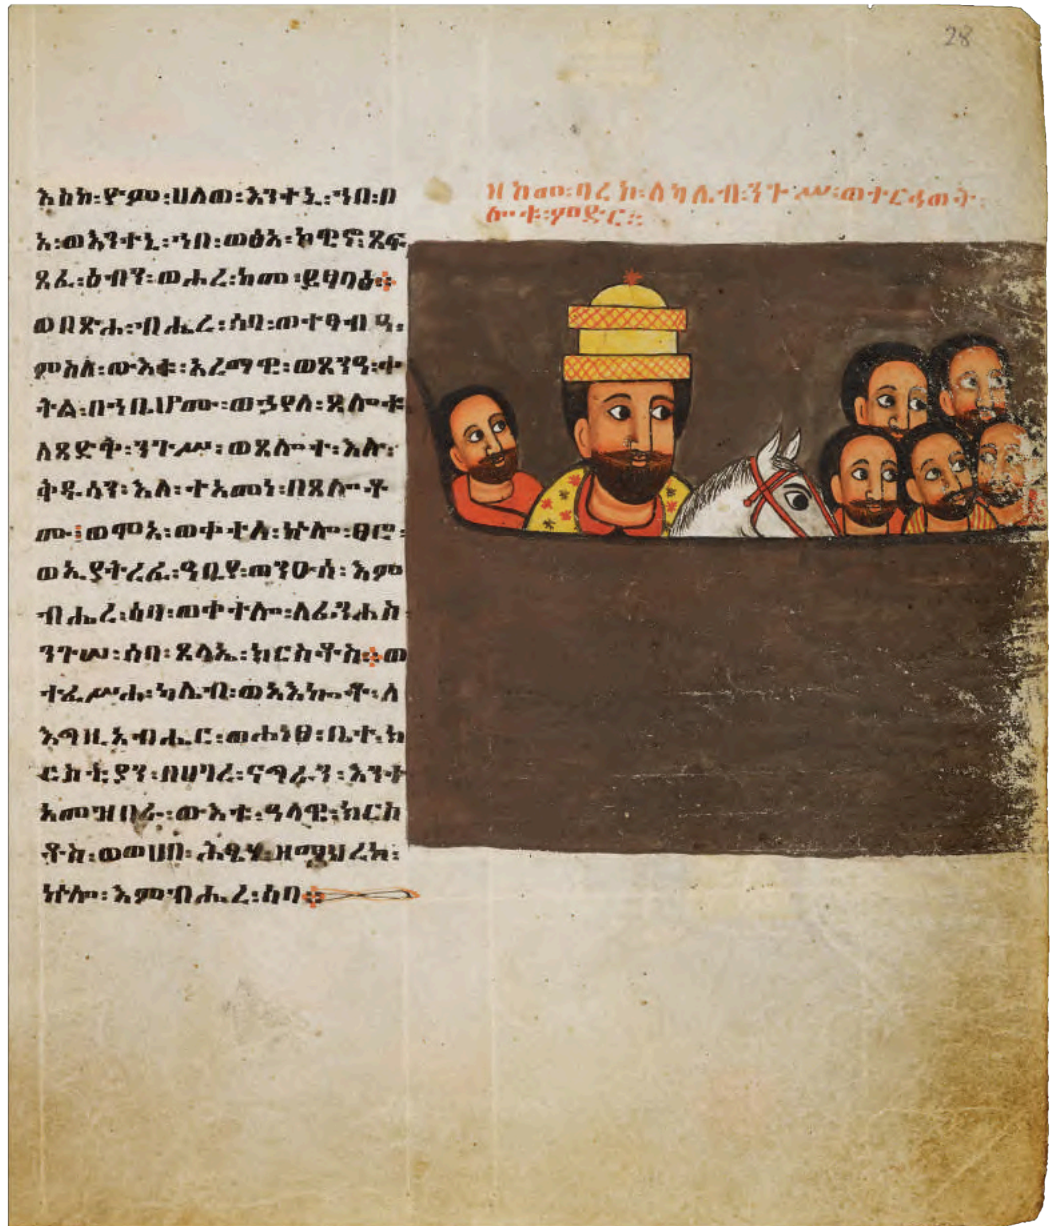 28
እስከ፡ዮም፡ሀለወ፡እንተኒ፡ኀበ፡ቦ
አ፡ወእንተኒ፡ኀበ፡ወፅአ፡
ጸፈ፡ዕብን፡ወሖረ፡ከመ፡ይፃባዕ።
ወበጽሐ፡ብሔረ፡ሳባ፡ወተፃብዓ፡
ምስለ፡ውእቱ፡አረማዊ፡ወጸንዓ፡ቀ
ትል፡በኀቤሆሙ፡ወኃየለ፡ጸሎቱ፡
ለጻድቅ፡ንጉሥ፡ወጸሎተ፡እሉ፡
ቅዱሳን፡እለ፡ተአመነ፡በጸሎቶ
ሙ፡ወሞአ፡ወቀተለ፡ኵሎ፡ፀሮ፡
ወኢያትረፈ፡ዓቢየ፡ወንዑሰ፡እም
ብሔረ፡ሳባ፡ወቀተሎ፡ለፊንሐስ
ንጉሠ፡ሳባ፡ጸላኤ፡ክርስቶስ።ወ
ተፈሥሐ፡ካሌብ፡ወአእኰቶ፡ለ
እግዚአብሔር፡ወሐነፀ፡ቤተ፡ክ
ርስቲያን፡በሀገረ፡ናግራን፡እንተ
አመዝበራ፡ውእቱ፡ዓላዊ፡ክርስ
ቶስ፡ወመሀበ፡ሕዒሃ፡ዘማህረከ፡
ኵሎ፡እምብሔረ፡ሳባ።
ዘከመ፡ባረከ፡ለካሌብ፡ንጉሥ፡ወተርኅወት፡
ሎቱ፡ምድር።